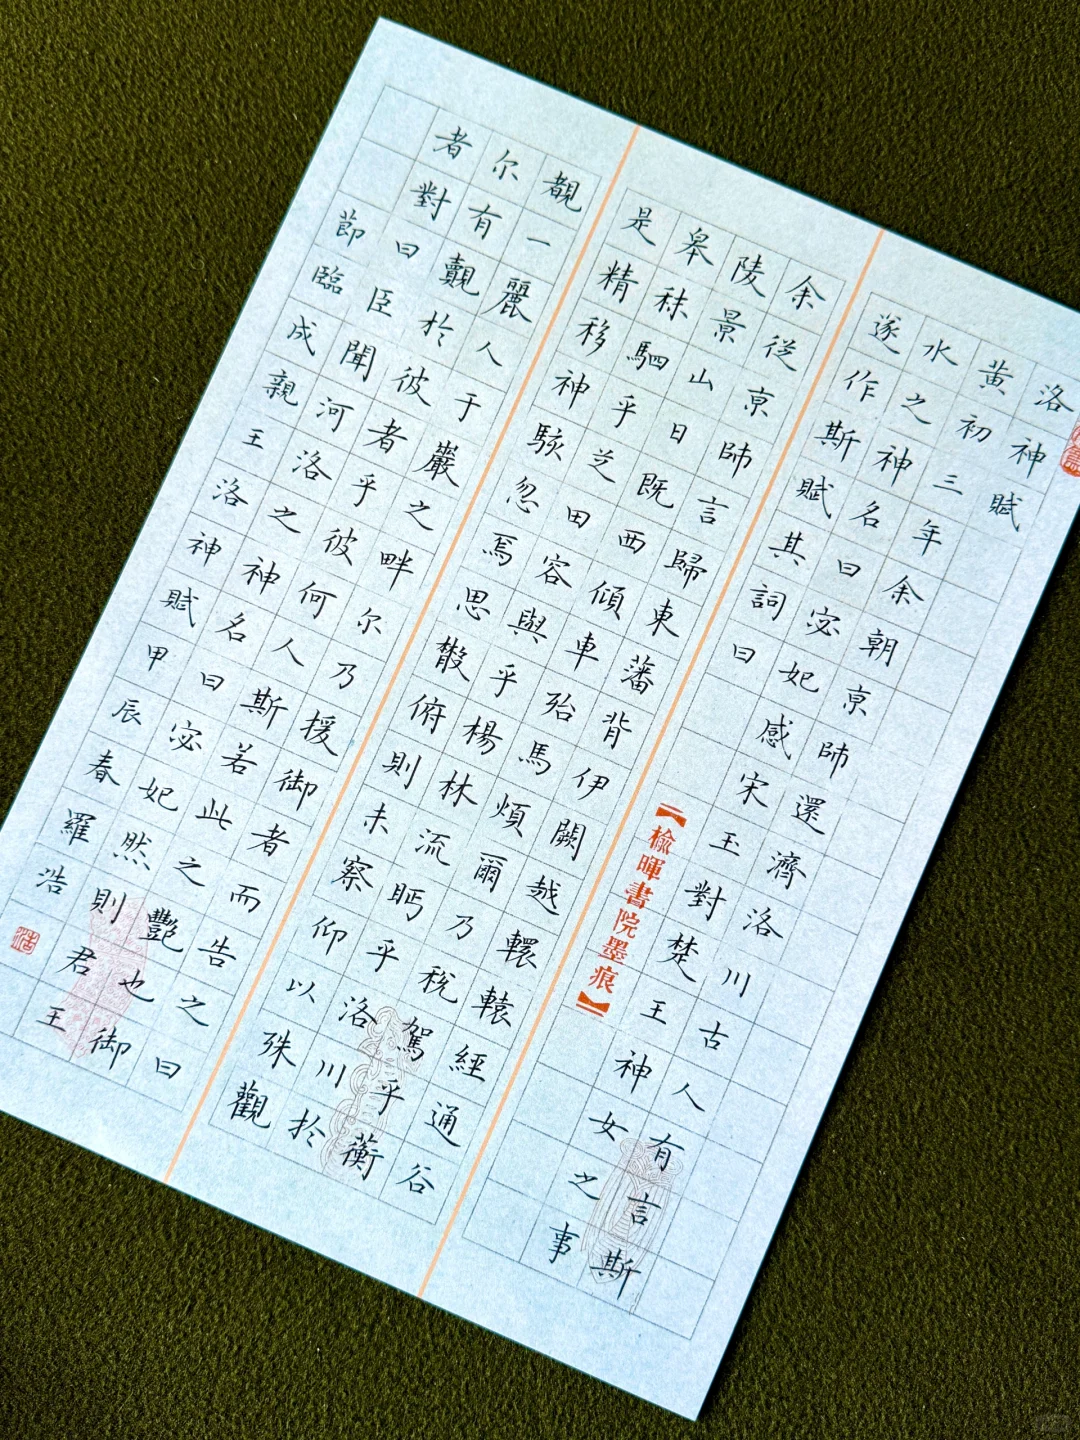 洛神賦
黄初三年余朝京師還濟洛川古人有言斯
水之神名曰宓妃感宋玉對楚王神女之事
遂作斯賦其詞曰
【榆暉書院墨痕】
余從京師言歸東藩背伊闕越轘轅經通谷
陵景山日既西傾車殆馬煩爾乃稅駕乎蘅
皋秣駟乎芝田容與乎楊林流眄乎洛川於
是精移神駭忽焉思散俯則未察仰以殊觀
覩一麗人于巖之畔尔乃援御者而告之曰
尔有覿於彼者乎彼何人斯若此之豔也御
者對曰臣聞河洛之神名曰宓妃然則君王
節臨成親王洛神賦甲辰春羅浩
浩